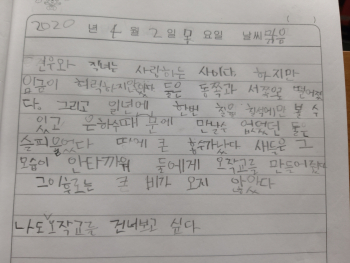 2020 년 4 월 2 일 목 요일 날씨 맑음
견우와 직녀는 사랑하는 사이다 하지만
임금이 허락하지 않았다 둘은 동쪽과 서쪽으로 떨어졌
다. 그리고 일년에 한번 칠월 칠석에만 볼 수
있고 은하수 때문에 만날 수 없었던 둘은
슬퍼 울었다 땅에 큰 홍수가 났다 새들은 그
모습이 안타까워 둘에게 오작교를 만들어줬다
그 이후로는 큰 비가 오지 않았다
나도 오작교를 건너보고 싶다